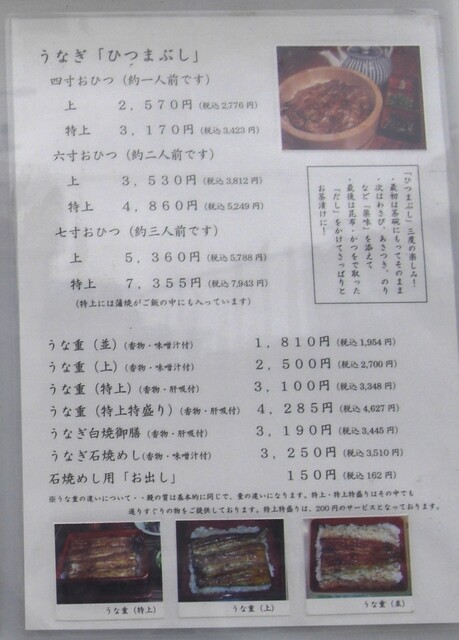 うなぎ「ひつまぶし」
四寸おひつ（約一人前です）
上　２,５７０円（税込2,776円）
特上　３,１７０円（税込3,423円）
六寸おひつ（約二人前です）
上　３,５３０円（税込3,812円）
特上　４,８６０円（税込5,249円）
七寸おひつ（約三人前です）
上　５,３６０円（税込5,788円）
特上　７,３５５円（税込7,943円）
（特上には蒲焼がご飯の中にも入っています）
「ひつまぶし」三度の楽しみ！
・最初は茶碗にもってそのまま
・次はわさび、あさつき、のり
など「薬味」を添えて
・最後は昆布・かつをで取った
「だし」をかけてさっぱりと
お茶漬けに！
うな重（並）（香物・味噌汁付）　１,８１０円（税込1,954円）
うな重（上）（香物・味噌汁付）　２,５００円（税込2,700円）
うな重（特上）（香物・肝吸付）　３,１００円（税込3,348円）
うな重（特上特盛り）（香物・肝吸付）　４,２８５円（税込4,627円）
うなぎ白焼御膳（香物・肝吸付）　３,１９０円（税込3,445円）
うなぎ石焼めし（香物・味噌汁付）　３,２５０円（税込3,510円）
石焼めし用「お出し」　１５０円（税込162円）
※うな重の違いについて・・鰻の質は基本的に同じで、量の違いになります。特上・特上特盛りはその中でも
選りすぐりの物をご提供しております。特上特盛りは、200円のサービスとなっております。
うな重（特上）
うな重（上）
うな重（並）